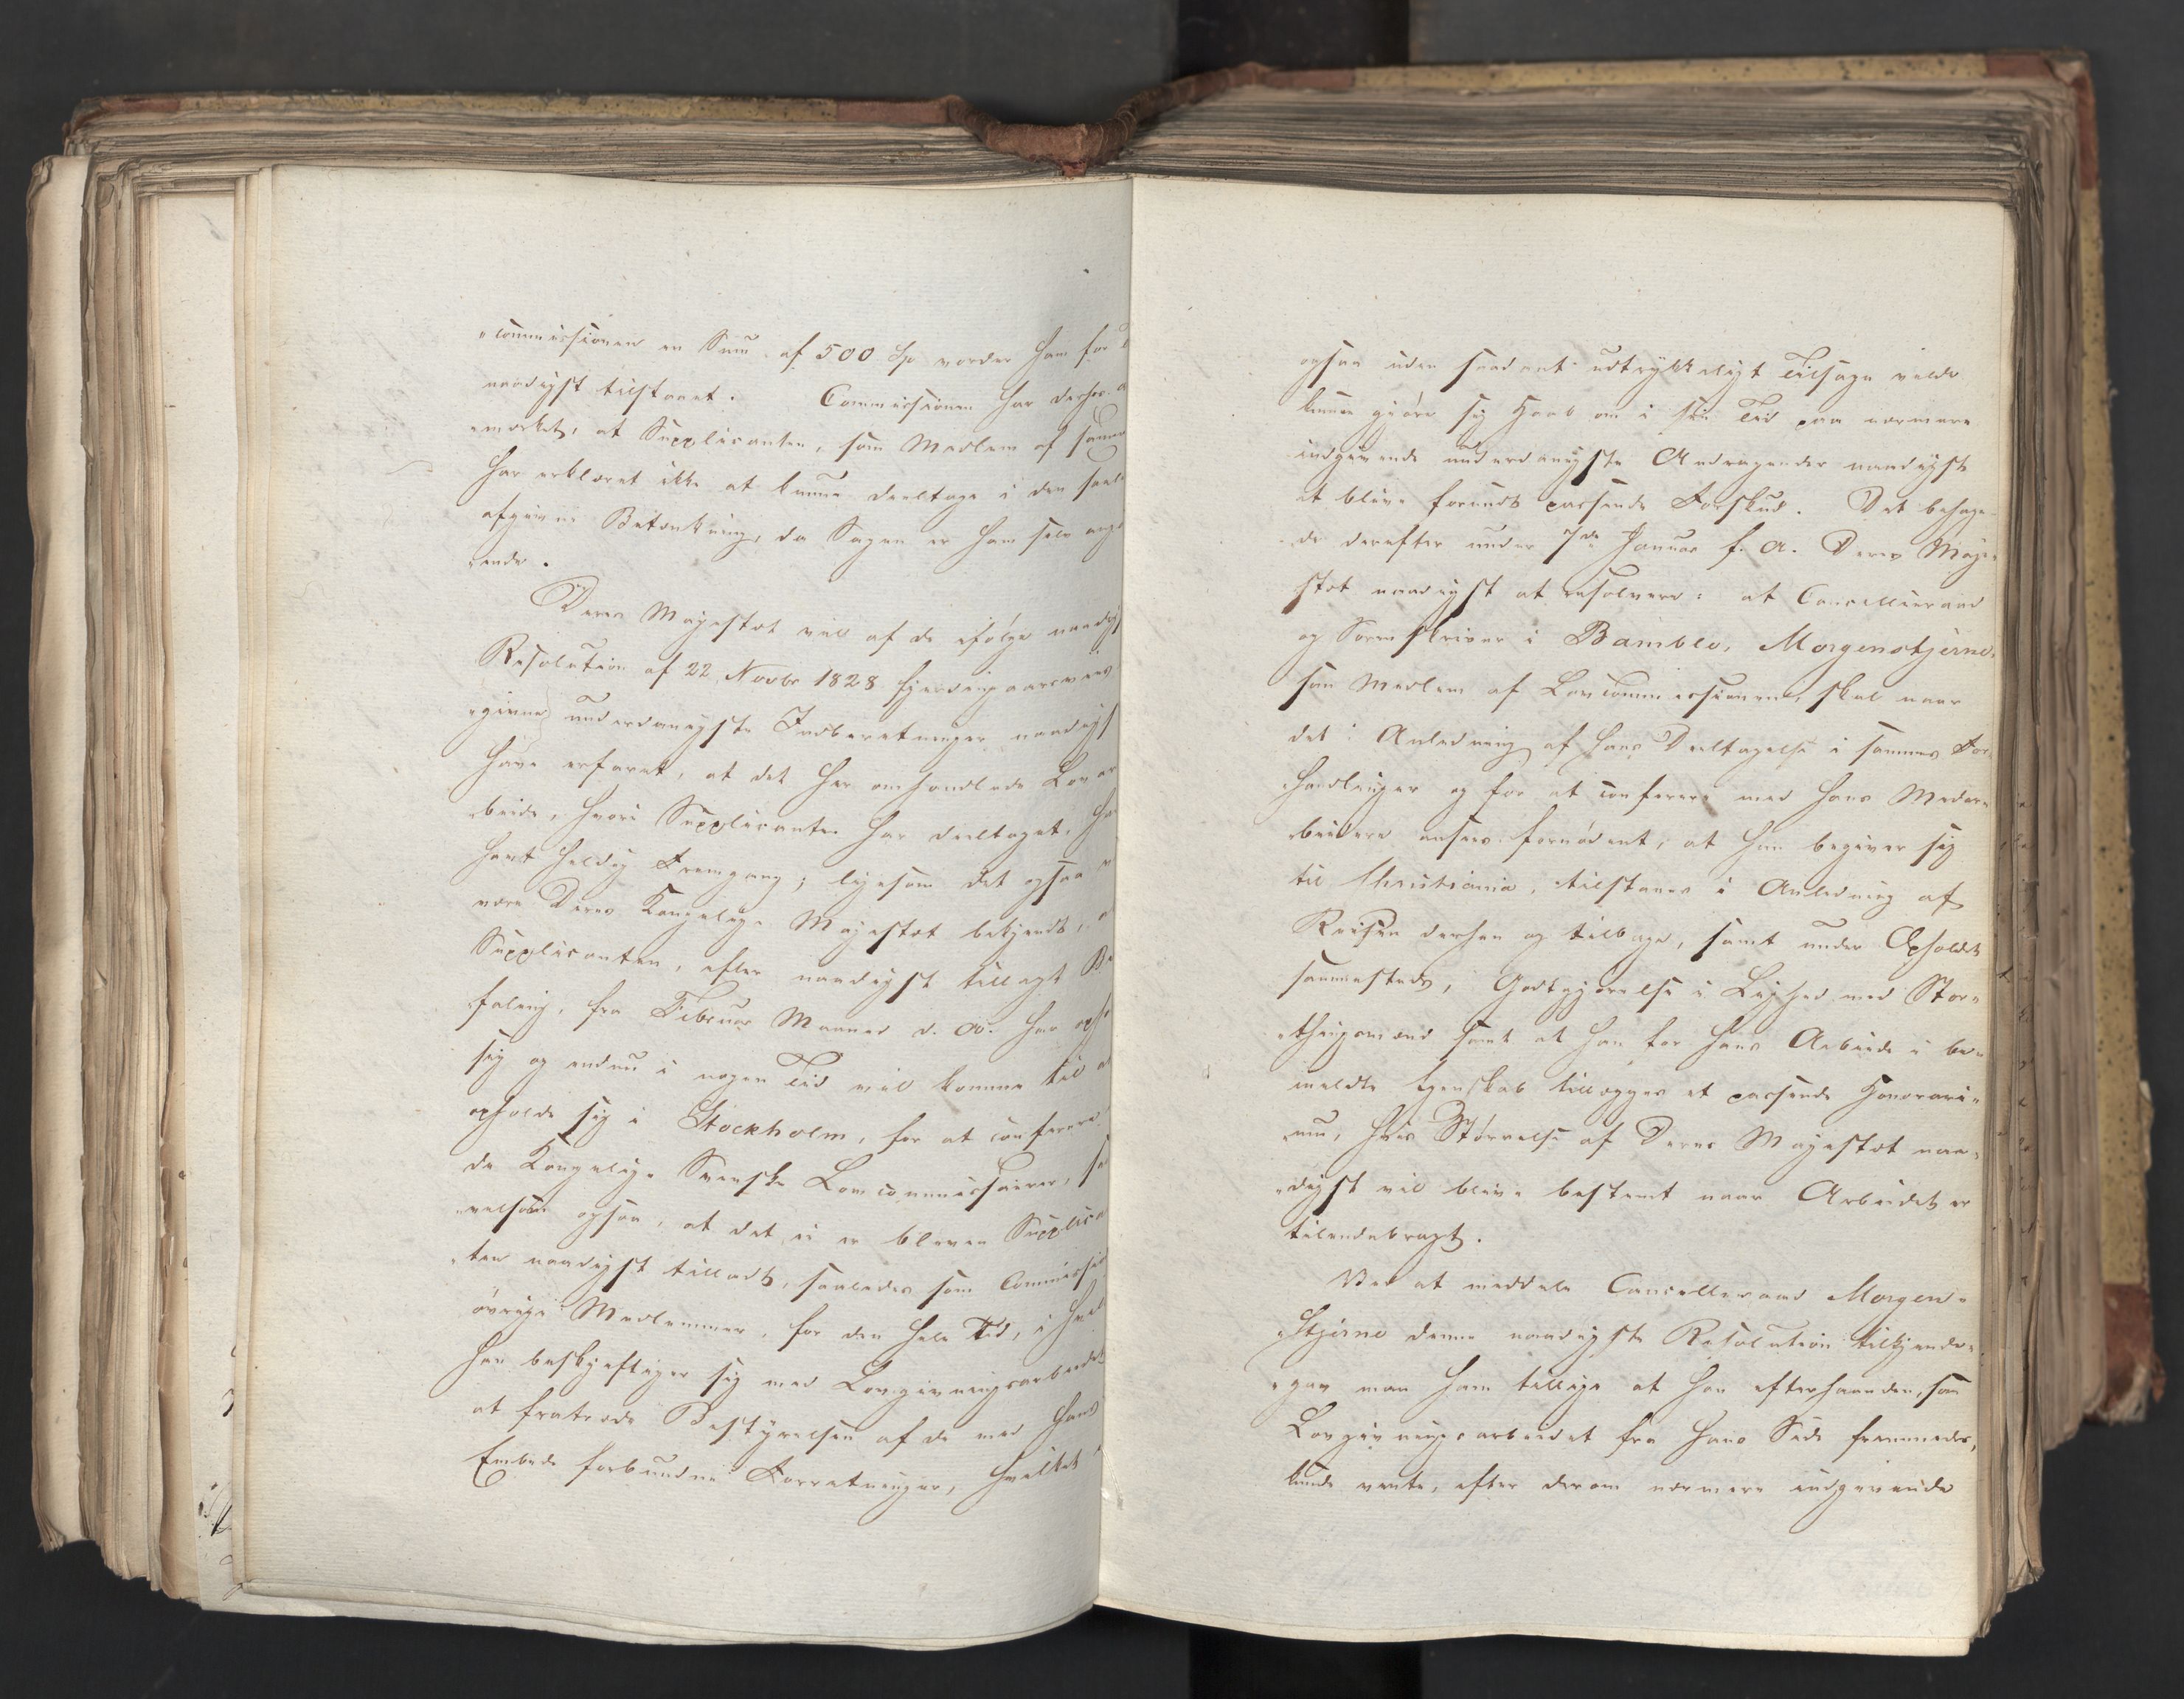 "commissionen en Sum af 500 Sp vorder ham for
naadigst tilstaaet. Commissionen har derhos
"mærket, at Supplicanten, som Medlem af samme
har erklæret ikke at kunne deeltage i den saaledes
afgivne Betænkning, da Sagen er ham selv ang
"ende.
Deres Majestæt vil af de ifølge naadigst
Resolution af 22 Novbr 1828 fjerdingaarsviis
"givne underdanigste Indberetninger naadigst
have erfaret, at det her omhandlede Lovar
"beide, hvori Supplicanten har deeltaget, har
havt heldig Fremgang; ligesom det ogsaa
være Deres Kongelige Majestæt bekjendt, at
Supplicanten, efter naadigst tillagt Be
"faling, fra Februar Maaned d. A. har opholdt
sig og endnu i nogen Tid vil komme til at
opholde sig i Stockholm, for at conferere
de Kongelige Svenske Lovcommissairer, saa
"velsom ogsaa, at det ei er bleven Supplican
"ten naadigst tilladt, saaledes som Commissionens
øvrige Medlemmer, for den hele Tid, i hvilken
han beskjeftiger sig med Lovgivningsarbeidet
at fratræde Bestyrelsen af de med hans
Embede forbundne Forretninger, hvilket
ogsaa uden saadant udtrykkeligt Tilsagn vilde
kunne gjøre sig Haab om i sin Tid paa nærmere
indgivende underdanigste Andragender naadigst
at blive forundt passende Forskud. Det behage-
de derefter under 7de Januar f. A. Deres Maje-
stæt naadigst at resolvere: at Cancelliraad
og Sorenskriver i Bamble, Morgenstjerne,
som Medlem af Lovcommissionen, skal naar
det i Anledning af hans Deeltagelse i sammes For-
handlinger og for at conferere med hans Medar-
beidere ansees fornødent, at han begiver sig
til Christiania, tilstaaes i Anledning af
Reisen derhen og tilbage, samt under Opholdet
sammesteds, Godtgjørelse i Lighed med Stor-
"thingsmænd samt at han for hans Arbeide i be-
meldte Egenskab tillægges et passende Honorari-
"um, hvis Størrelse af Deres Majestæt naa-
"digst vil blive bestemt naar Arbeidet er
tilendebragt.
Ved at meddele Cancelliraad Morgen-
"stjerne denne naadigste Resolution tilkjende-
"gav man ham tillige at han efterhaanden, som
Lovgivningsarbeidet fra hans Side fremmedes,
kunde vente, efter derom nærmere indgivende